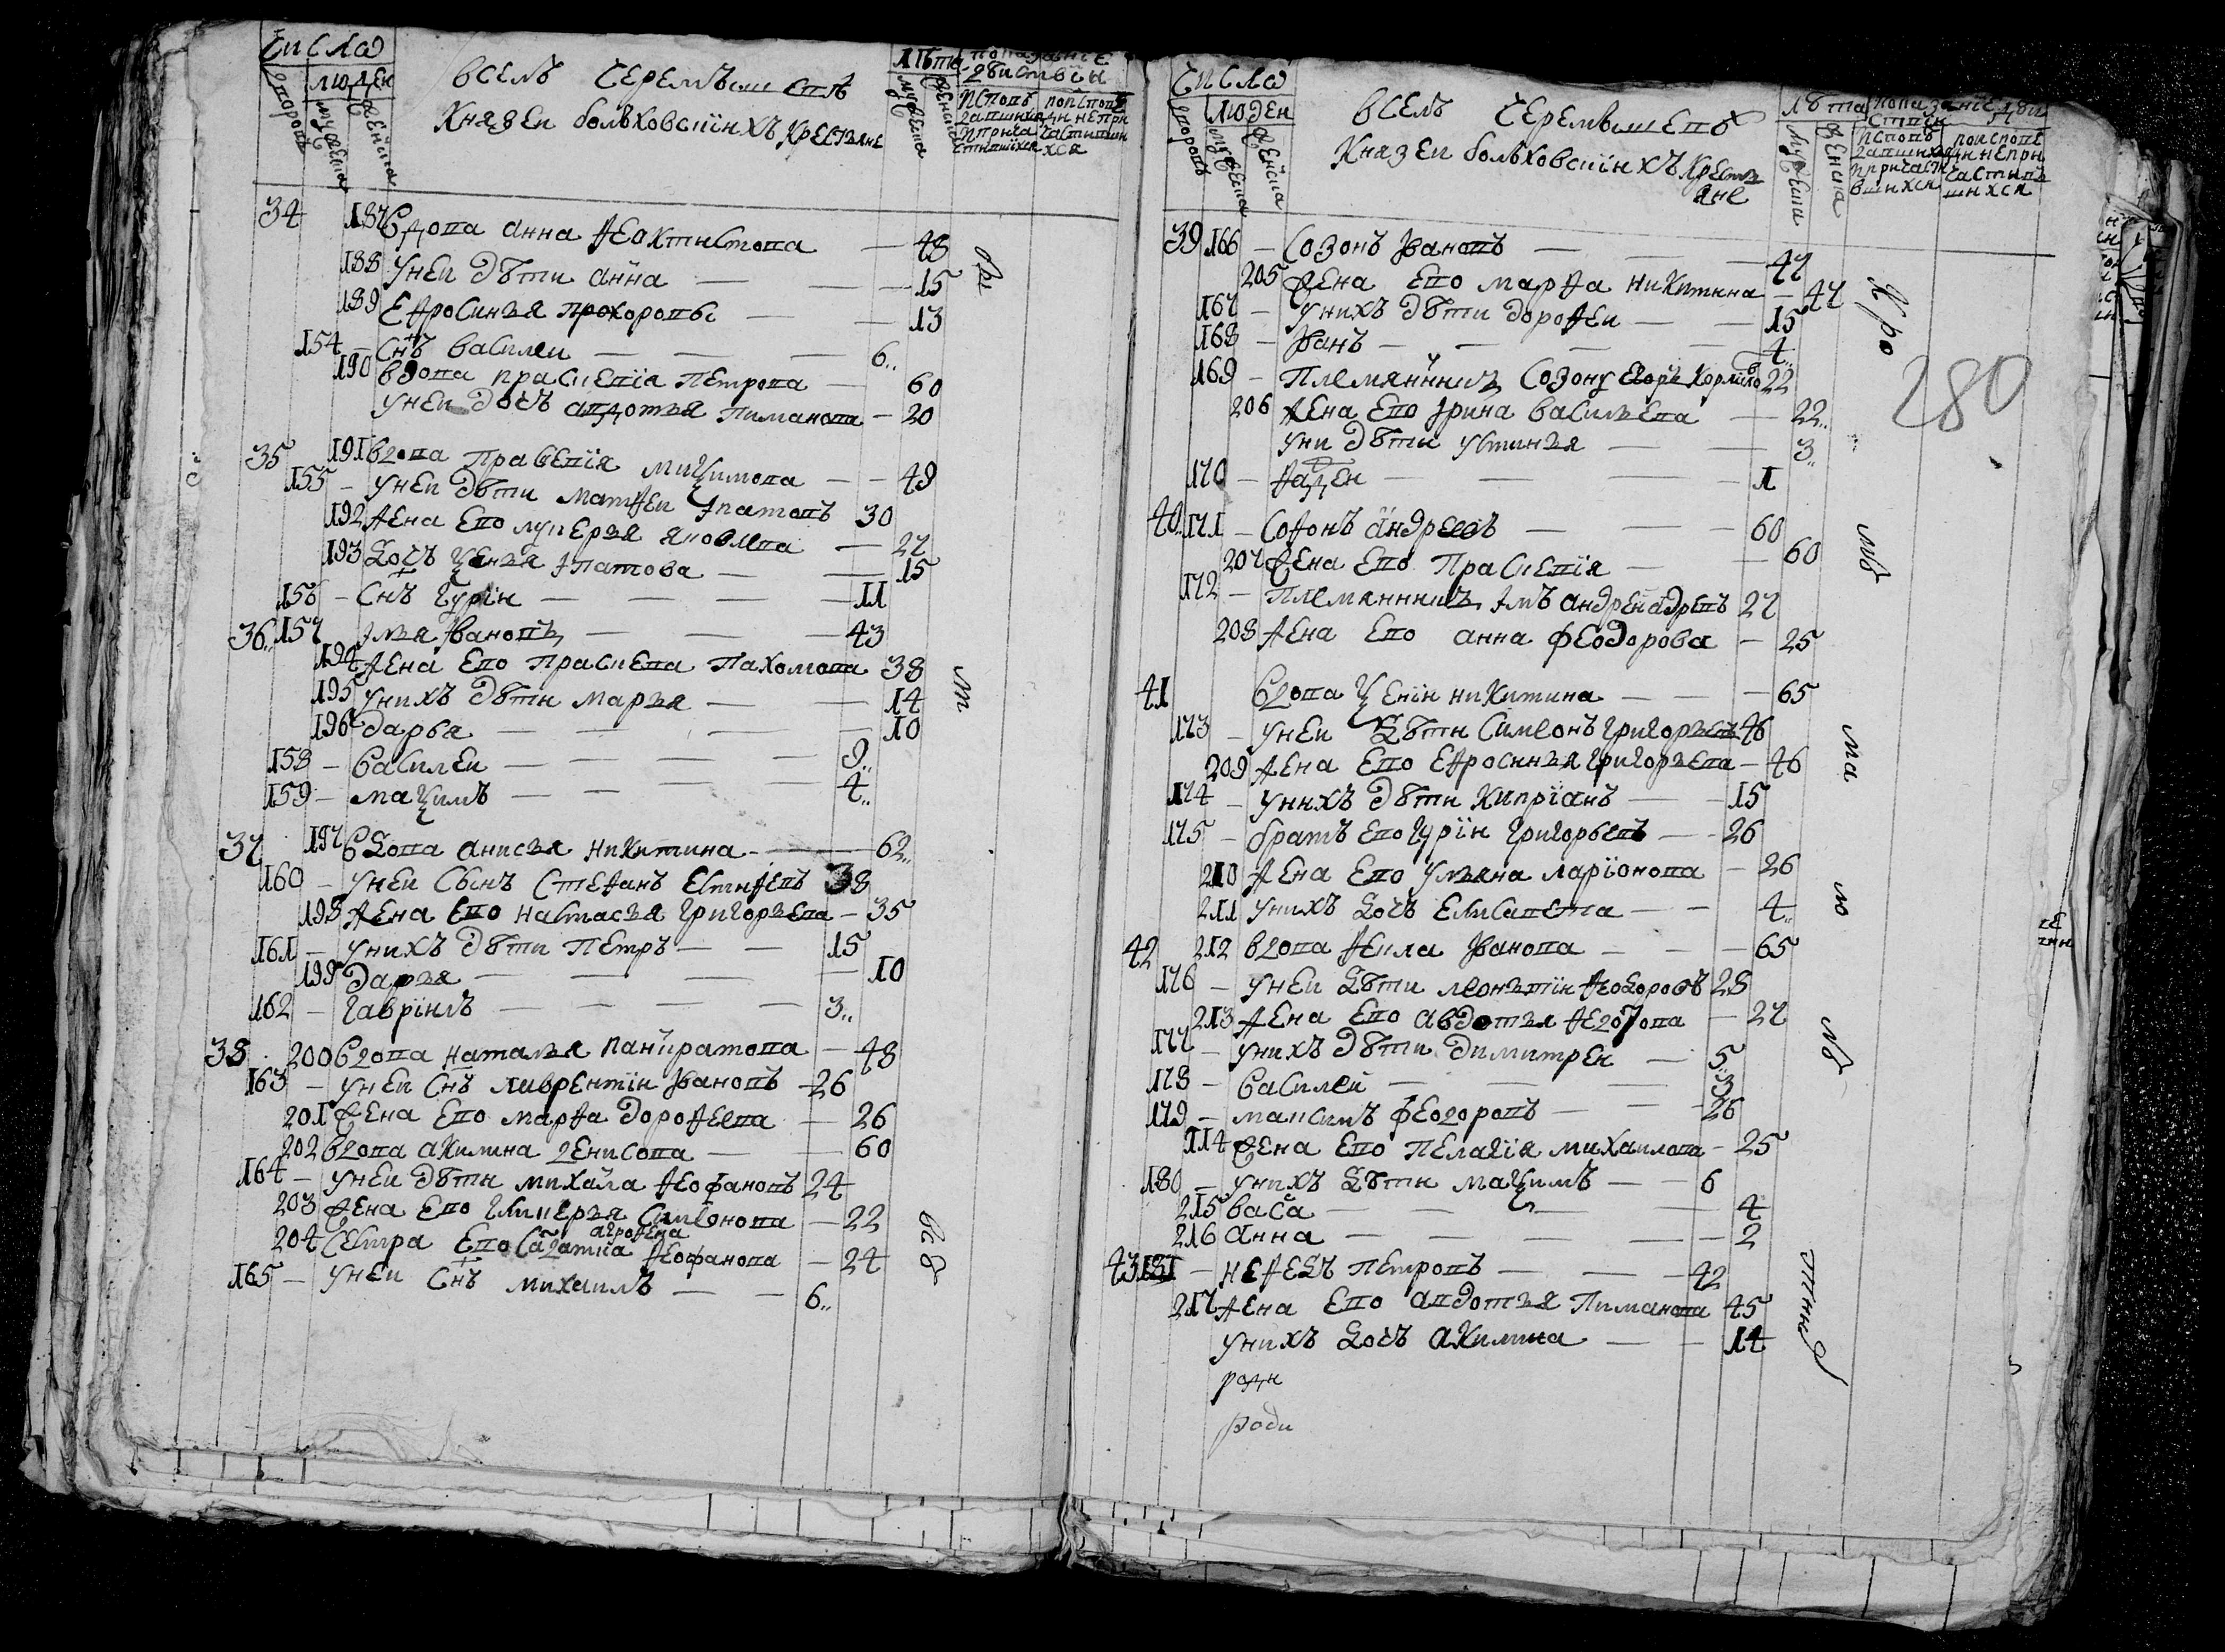 Число
людей
дворовъ
мужеска
женска
в селѣ Черемѣшевѣ
Князей болховскіихъ крестьяне
Лѣта
мужеска
женска
показаніе
дѣйствія
исповѣдавшихся и причастившихся
по исповѣди не причастившихся
34 187 вдова анна Феоктистова — 48
188 у ней дѣти анна — 15
189 Ефросинья прохоровы — 13
154 — снъ василеи — 6
190 вдова праскевія петрова — 60
у ней дочь авдотья пиманова — 20
35 191 вдова праскевія — 49
155 — у ней дѣти матфеи Ипатовъ 30
192 жена ево лукерья яковлева — 27
193 дочь Ѯенья Ипатова — 15
156 — снъ Гурїи — 11
36 157 Илья Ивановъ — 43
194 жена ево праскева пахомова 38
195 у нихъ дѣти марья — 14
196 дарья — 10
158 — василеи — 9
159 — маѯимъ — 4
37 197 вдова анисья никитина — 62
160 — у неи сынъ стефанъ Естифевъ 38
198 жена ево настасья григорьева — 35
161 — у нихъ дѣти петръ — 15
199 дарья — 10
162 — гаврїилъ — 3
38 200 вдова наталья панкратова — 48
163 — у неи снъ лаврентїи Ивановъ — 26
201 жена ево марфа дорофеева — 26
202 вдова акилина денисова — 60
164 — у неи дѣти михаила Феофановъ 24
203 жена ево гликерья симеонова — 22
агрофена
204 сестра ево Феофанова — 24
165 — у неи снъ михаилъ — 6
Число
людей
дворовъ
мужеска
женска
в селѣ Черемѣшевѣ
Князей болховскіихъ крестьяне
Лѣта
мужеска
женска
показаніе дѣйствія
исповѣдавшихся и причастившихся
по исповѣди не причастившихся
280
39 166 — Созонъ Ивановъ — 47
205 жена ево марфа никитина — 47
167 — у нихъ дѣти дорофеи — 15
168 — Иванъ — 4
169 — племянникъ Созону 22
206 жена ево Ирина васильева — 22
у ни дѣти устинья — 3
170 — фадеи — 1
40 171 — Софонъ андреевъ — 60
207 жена ево праскевія — 60
172 — племянникъ 27
208 жена ево анна феодорова — 25
41 вдова Ѯенїи никитина — 65
173 — у неи дѣти симеонъ григорьевъ 46
209 жена ево Ефросинья григорьева — 46
174 — у нихъ дѣти кипрїанъ — 15
175 — братъ ево гурїи григорьевъ — 26
210 жена ево ульяна ларїонова — 26
211 у нихъ дочь елисавета — 4
42 212 вдова фекла Иванова — 65
176 — у неи дѣти леонътїи Феодоровъ 28
213 жена ево авдотья Федотова — 27
177 — у нихъ дѣти димитреи — 5
178 — василеи — 3
179 — максимъ феодоровъ — 26
114 жена ево пелагїя михаилова — 25
180 — у нихъ дѣти маѯимъ — 6
215 васа — 4
216 анна — 2
43 181 — нефедъ петровъ — 42
217 жена ево авдотья пиманова 45
у нихъ дочь акилина — 14
роди
роди